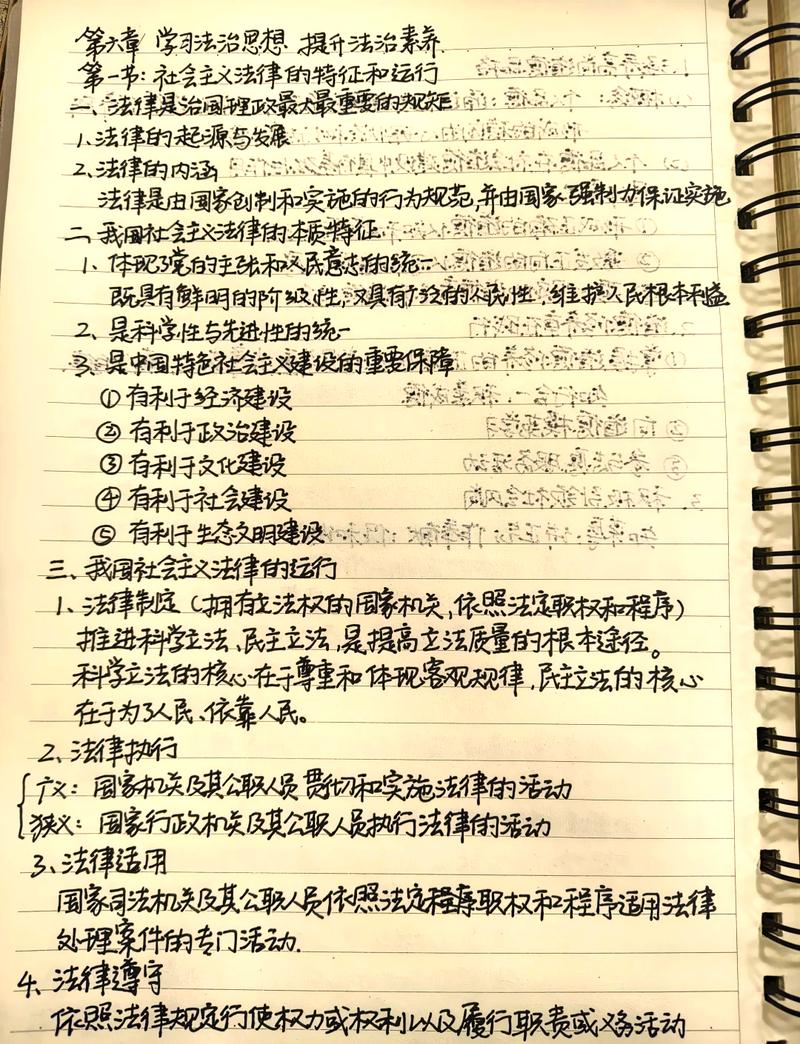 第六章 学习法治思想 提升法治素养.
第一节：社会主义法律的特征和运行
一、法律是治国理政最大最重要的规矩
1.法律的起源与发展
2.法律的内涵
法律是由国家创制和实施的行为规范,并由国家强制力保证实施
二、我国社会主义法律的本质特征
1、体现了党的主张和人民意志的统一
既具有鲜明的阶级性,又具有广泛的人民性，维护人民根本利益
2、是科学性与先进性的统一
3、是中国特色社会主义建设的重要保障
① 有利于经济建设
② 有利于政治建设
③ 有利于文化建设
④ 有利于社会建设
⑤ 有利于生态文明建设
三、我国社会主义法律的运行
1、法律制定（拥有立法权的国家机关,依照法定职权和程序）
推进科学立法、民主立法,是提高立法质量的根本途径。
科学立法的核心在于尊重和体现客观规律,民主立法的核心
在于为了人民、依靠人民。
2、法律执行
广义：国家机关及其公职人员贯彻和实施法律的活动
狭义：国家行政机关及其公职人员执行法律的活动
3、法律适用
国家司法机关及其公职人员依照法定程序职权和程序适用法律
处理案件的专门活动.
4、法律遵守
依照法律规定行使权力或权利以及履行职责或义务活动